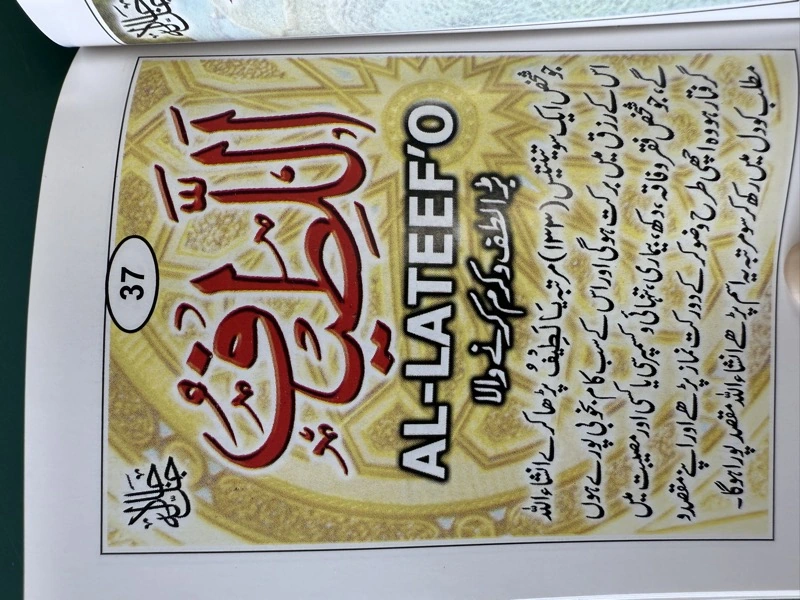 37
جل جلالہ
اَللَّطِيْفُ
AL-LATEEF'O
بڑا لطف و کرم کرنے والا
جو شخص ایک سو تینتیس (۱۳۳) مرتبہ یَا لَطِیْفُ پڑھا کرے انشاء اللہ
اس کے رزق میں برکت ہوگی اور اس کے سب کام بخوبی پورے ہوں
گے، جو شخص فقر و فاقہ، دکھ، بیماری، تنہائی و کسمپرسی یا کسی اور مصیبت میں
گرفتار ہو وہ اچھی طرح وضو کر کے دو رکعت نماز پڑھے اور اپنے مقصد و
مطلب کو دل میں رکھ کر سو مرتبہ یہ اسم پڑھے انشاء اللہ مقصد پورا ہوگا۔